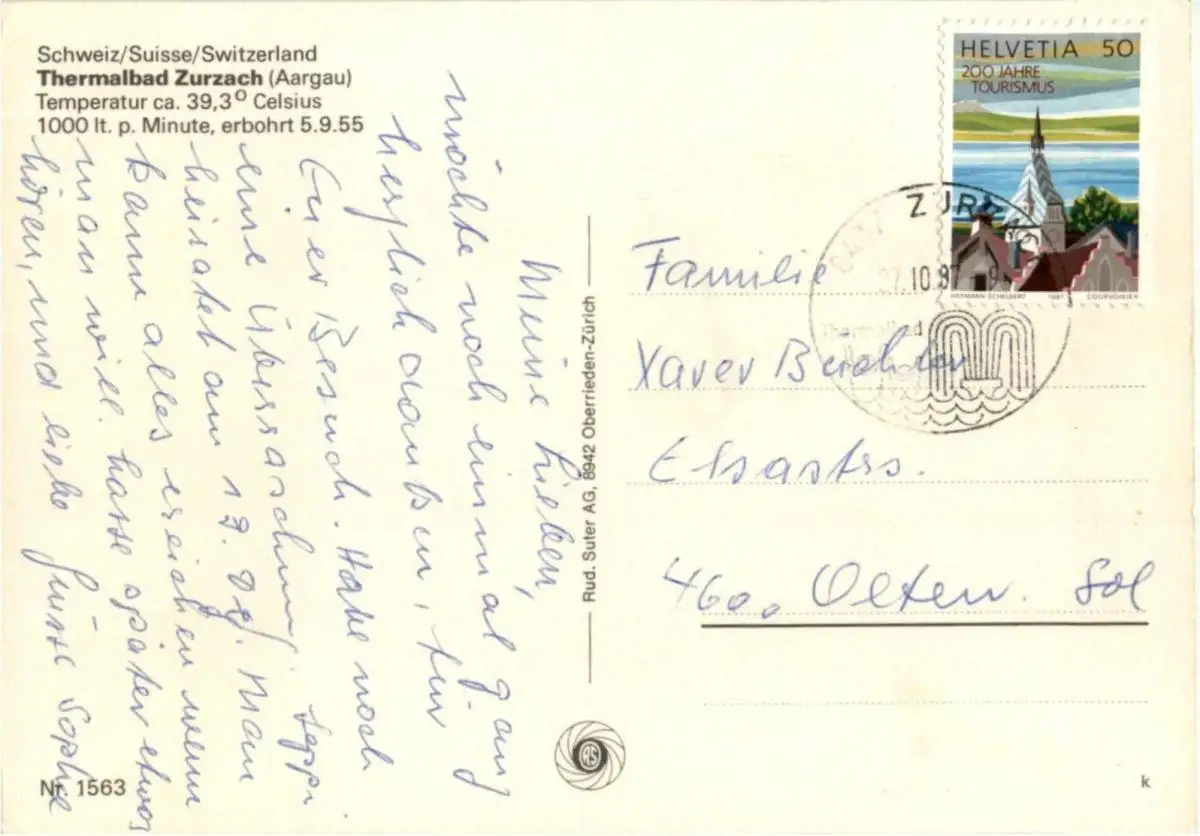 Schweiz/Suisse/Switzerland
Thermalbad Zurzach (Aargau)
Temperatur ca. 39,3° Celsius
1000 lt. p. Minute, erbohrt 5.9.55
Meine Lieben,
möchte noch einmal ganz
herzlich danken, für
Euer Besuch. Habe noch
eine Überraschung, Seppi
heiratet am 12. Dez. Man
kann alles erreichen wenn
man will. hasse später etwas
hören, und liebe Grüsse Sophie
Nr. 1563
Rud. Suter AG, 8942 Oberrieden-Zürich
RS
HELVETIA 50
200 JAHRE
TOURISMUS
HERMANN SCHELBERT 1987 COURVOISIER
ZURZACH
27.10.87
Thermalbad
Familie
Xaver
Elsastrs.
4600 Olten. Sol
k